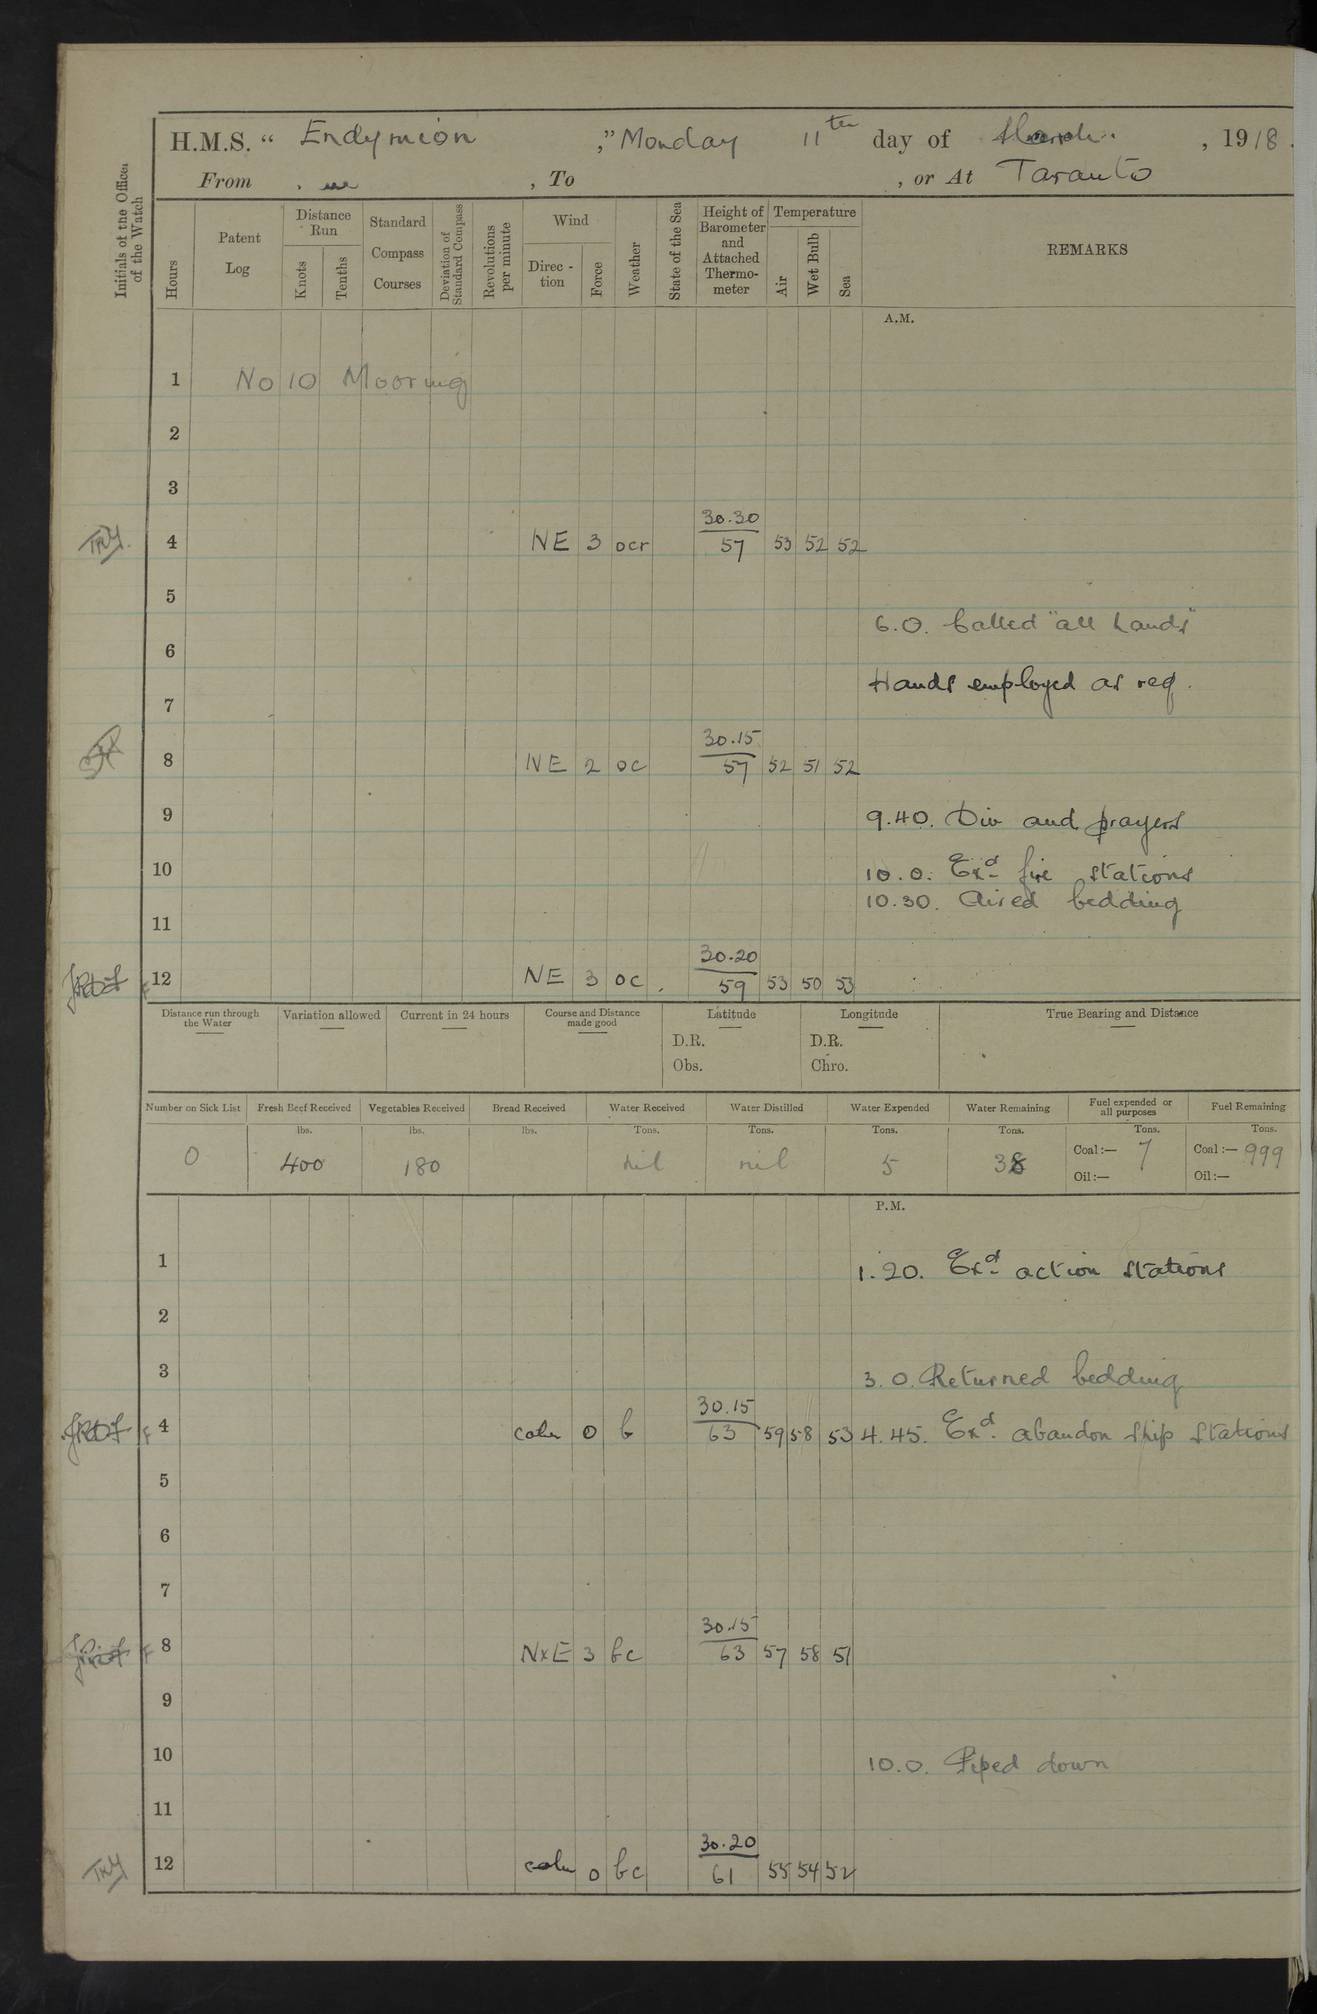 H.M.S. “ Endymion ,” Monday 11th day of March , 1918 .
From , To , or At Taranto
Initials of the Officer of the Watch
Hours
Patent Log
Distance Run
Knots
Tenths
Standard Compass Courses
Deviation of Standard Compass
Revolutions per minute
Wind
Direc - tion
Force
Weather
State of the Sea
Height of Barometer and Attached Thermo- meter
Temperature
Air
Wet Bulb
Sea
REMARKS
A.M.
1 No 10 Mooring
2
3
30.30
4 NE 3 ocr 57 53 52 52
5
6.0. Called "all hands"
6
Hands employed as req.
7
30.15
8 NE 2 oc 57 52 51 52
9 9.40. Div and prayers
10 10.0. Exd fire stations
10.30. Aired bedding
11
30.20
12 NE 3 oc 59 53 50 53
Distance run through the Water
Variation allowed
Current in 24 hours
Course and Distance made good
Latitude
D.R.
Obs.
Longitude
D.R.
Chro.
True Bearing and Distance
Number on Sick List Fresh Beef Received Vegetables Received Bread Received Water Received Water Distilled Water Expended Water Remaining Fuel expended or all purposes Fuel Remaining
lbs. lbs. lbs. Tons. Tons. Tons. Tons. Tons. Tons.
0 400 180 nil nil 5 38 Coal :— 7 Coal :— 999
Oil :— Oil :—
P.M.
1 1.20. Exd action stations
2
3 3.0. Returned bedding
30.15
4 calm 0 b 63 59 58 53 4.45. Exd abandon ship stations
5
6
7
30.15
8 NxE 3 bc 63 57 58 51
9
10 10.0. Piped down
11
30.20
12 calm 0 bc 61 55 54 52